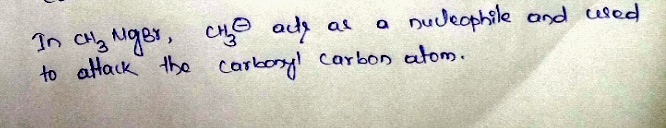 In CH₃MgBr, CH₃⊖ acts as a nucleophile and used
to attack the carbonyl carbon atom.